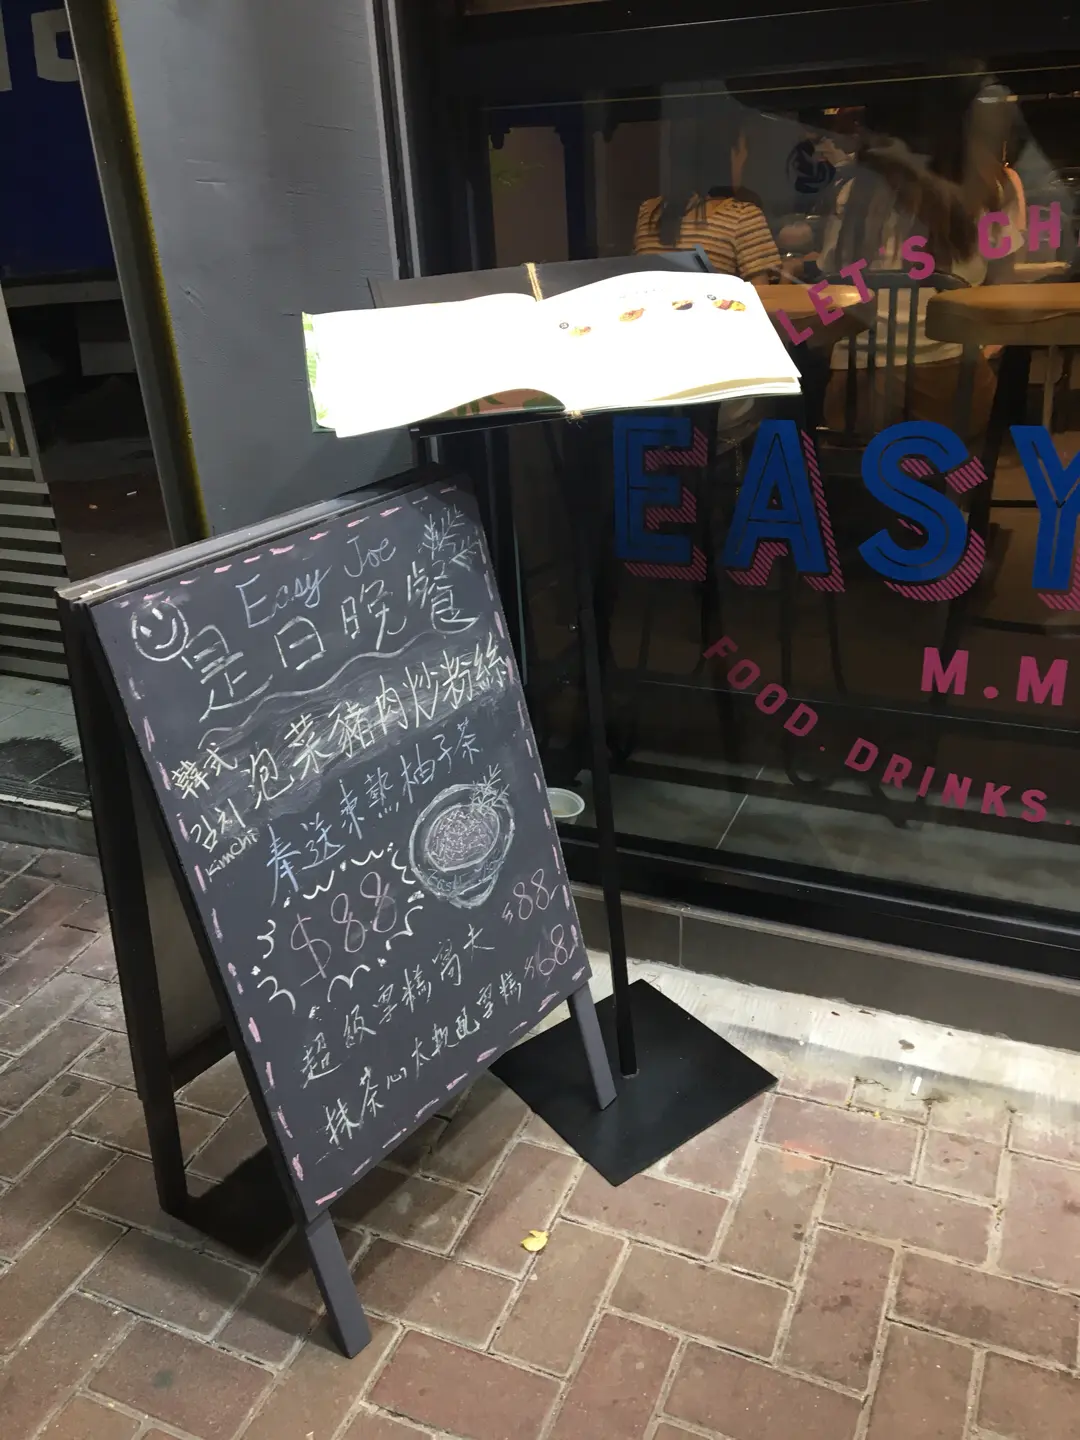 Easy Joe
是日晚餐
韓式
泡菜豬肉炒粉絲
김치
Kimchi
奉送凍熱柚子茶
$88
超級蛋糕窩夫 $88
抹茶心太軟配蛋糕 $68
LET'S CH
EASY
M.M
FOOD. DRINKS.